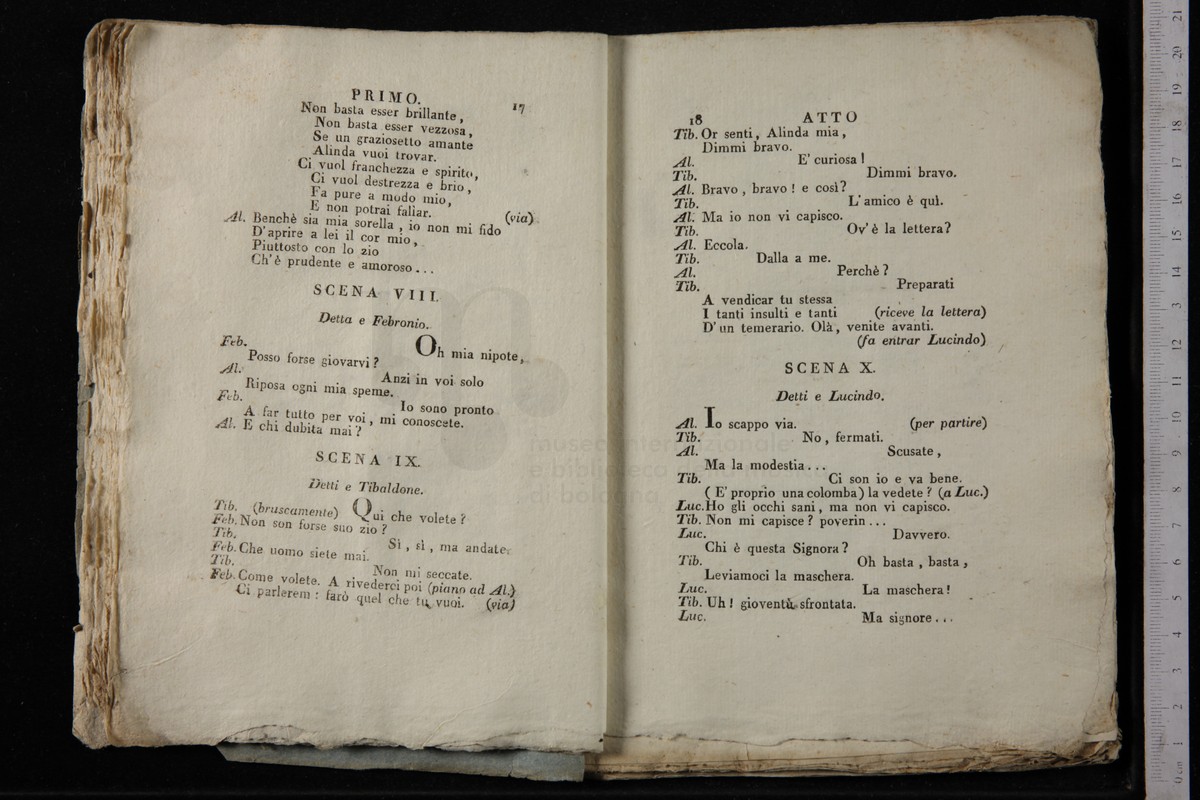 PRIMO. 17
Non basta esser brillante,
Non basta esser vezzosa,
Se un graziosetto amante
Alinda vuoi trovar.
Ci vuol franchezza e spirito,
Ci vuol destrezza e brio,
Fa pure a modo mio,
E non potrai fallar. (via)
Al. Benchè sia mia sorella, io non mi fido
D'aprire a lei il cor mio,
Piuttosto con lo zio
Ch'è prudente e amoroso...
SCENA VIII.
Detta e Febronio.
Feb. Oh mia nipote,
Posso forse giovarvi?
Al. Anzi in voi solo
Riposa ogni mia speme.
Feb. Io sono pronto
A far tutto per voi, mi conoscete.
Al. E chi dubita mai?
SCENA IX.
Detti e Tibaldone.
Tib. (bruscamente) Qui che volete?
Feb. Non son forse suo zio?
Tib. Sì, sì, ma andate.
Feb. Che uomo siete mai.
Tib. Non mi seccate.
Feb. Come volete. A rivederci poi (piano ad Al.)
Ci parlerem: farò quel che tu vuoi. (via)
18 ATTO
Tib. Or senti, Alinda mia,
Dimmi bravo.
Al. E' curiosa!
Tib. Dimmi bravo.
Al. Bravo, bravo! e così?
Tib. L'amico è quì.
Al. Ma io non vi capisco.
Tib. Ov'è la lettera?
Al. Eccola.
Tib. Dalla a me.
Al. Perchè?
Tib. Preparati
A vendicar tu stessa
I tanti insulti e tanti (riceve la lettera)
D'un temerario. Olà, venite avanti.
(fa entrar Lucindo)
SCENA X.
Detti e Lucindo.
Al. Io scappo via. (per partire)
Tib. No, fermati.
Al. Scusate,
Ma la modestia...
Tib. Ci son io e va bene.
(E' proprio una colomba) la vedete? (a Luc.)
Luc. Ho gli occhi sani, ma non vi capisco.
Tib. Non mi capisce? poverin...
Luc. Davvero.
Chi è questa Signora?
Tib. Oh basta, basta,
Leviamoci la maschera.
Luc. La maschera!
Tib. Uh! gioventù sfrontata.
Luc. Ma signore...
museo internazionale
e biblioteca della
di bologna
0 cm 1 2 3 4 5 6 7 8 9 10 11 12 13 14 15 16 17 18 19 20 21